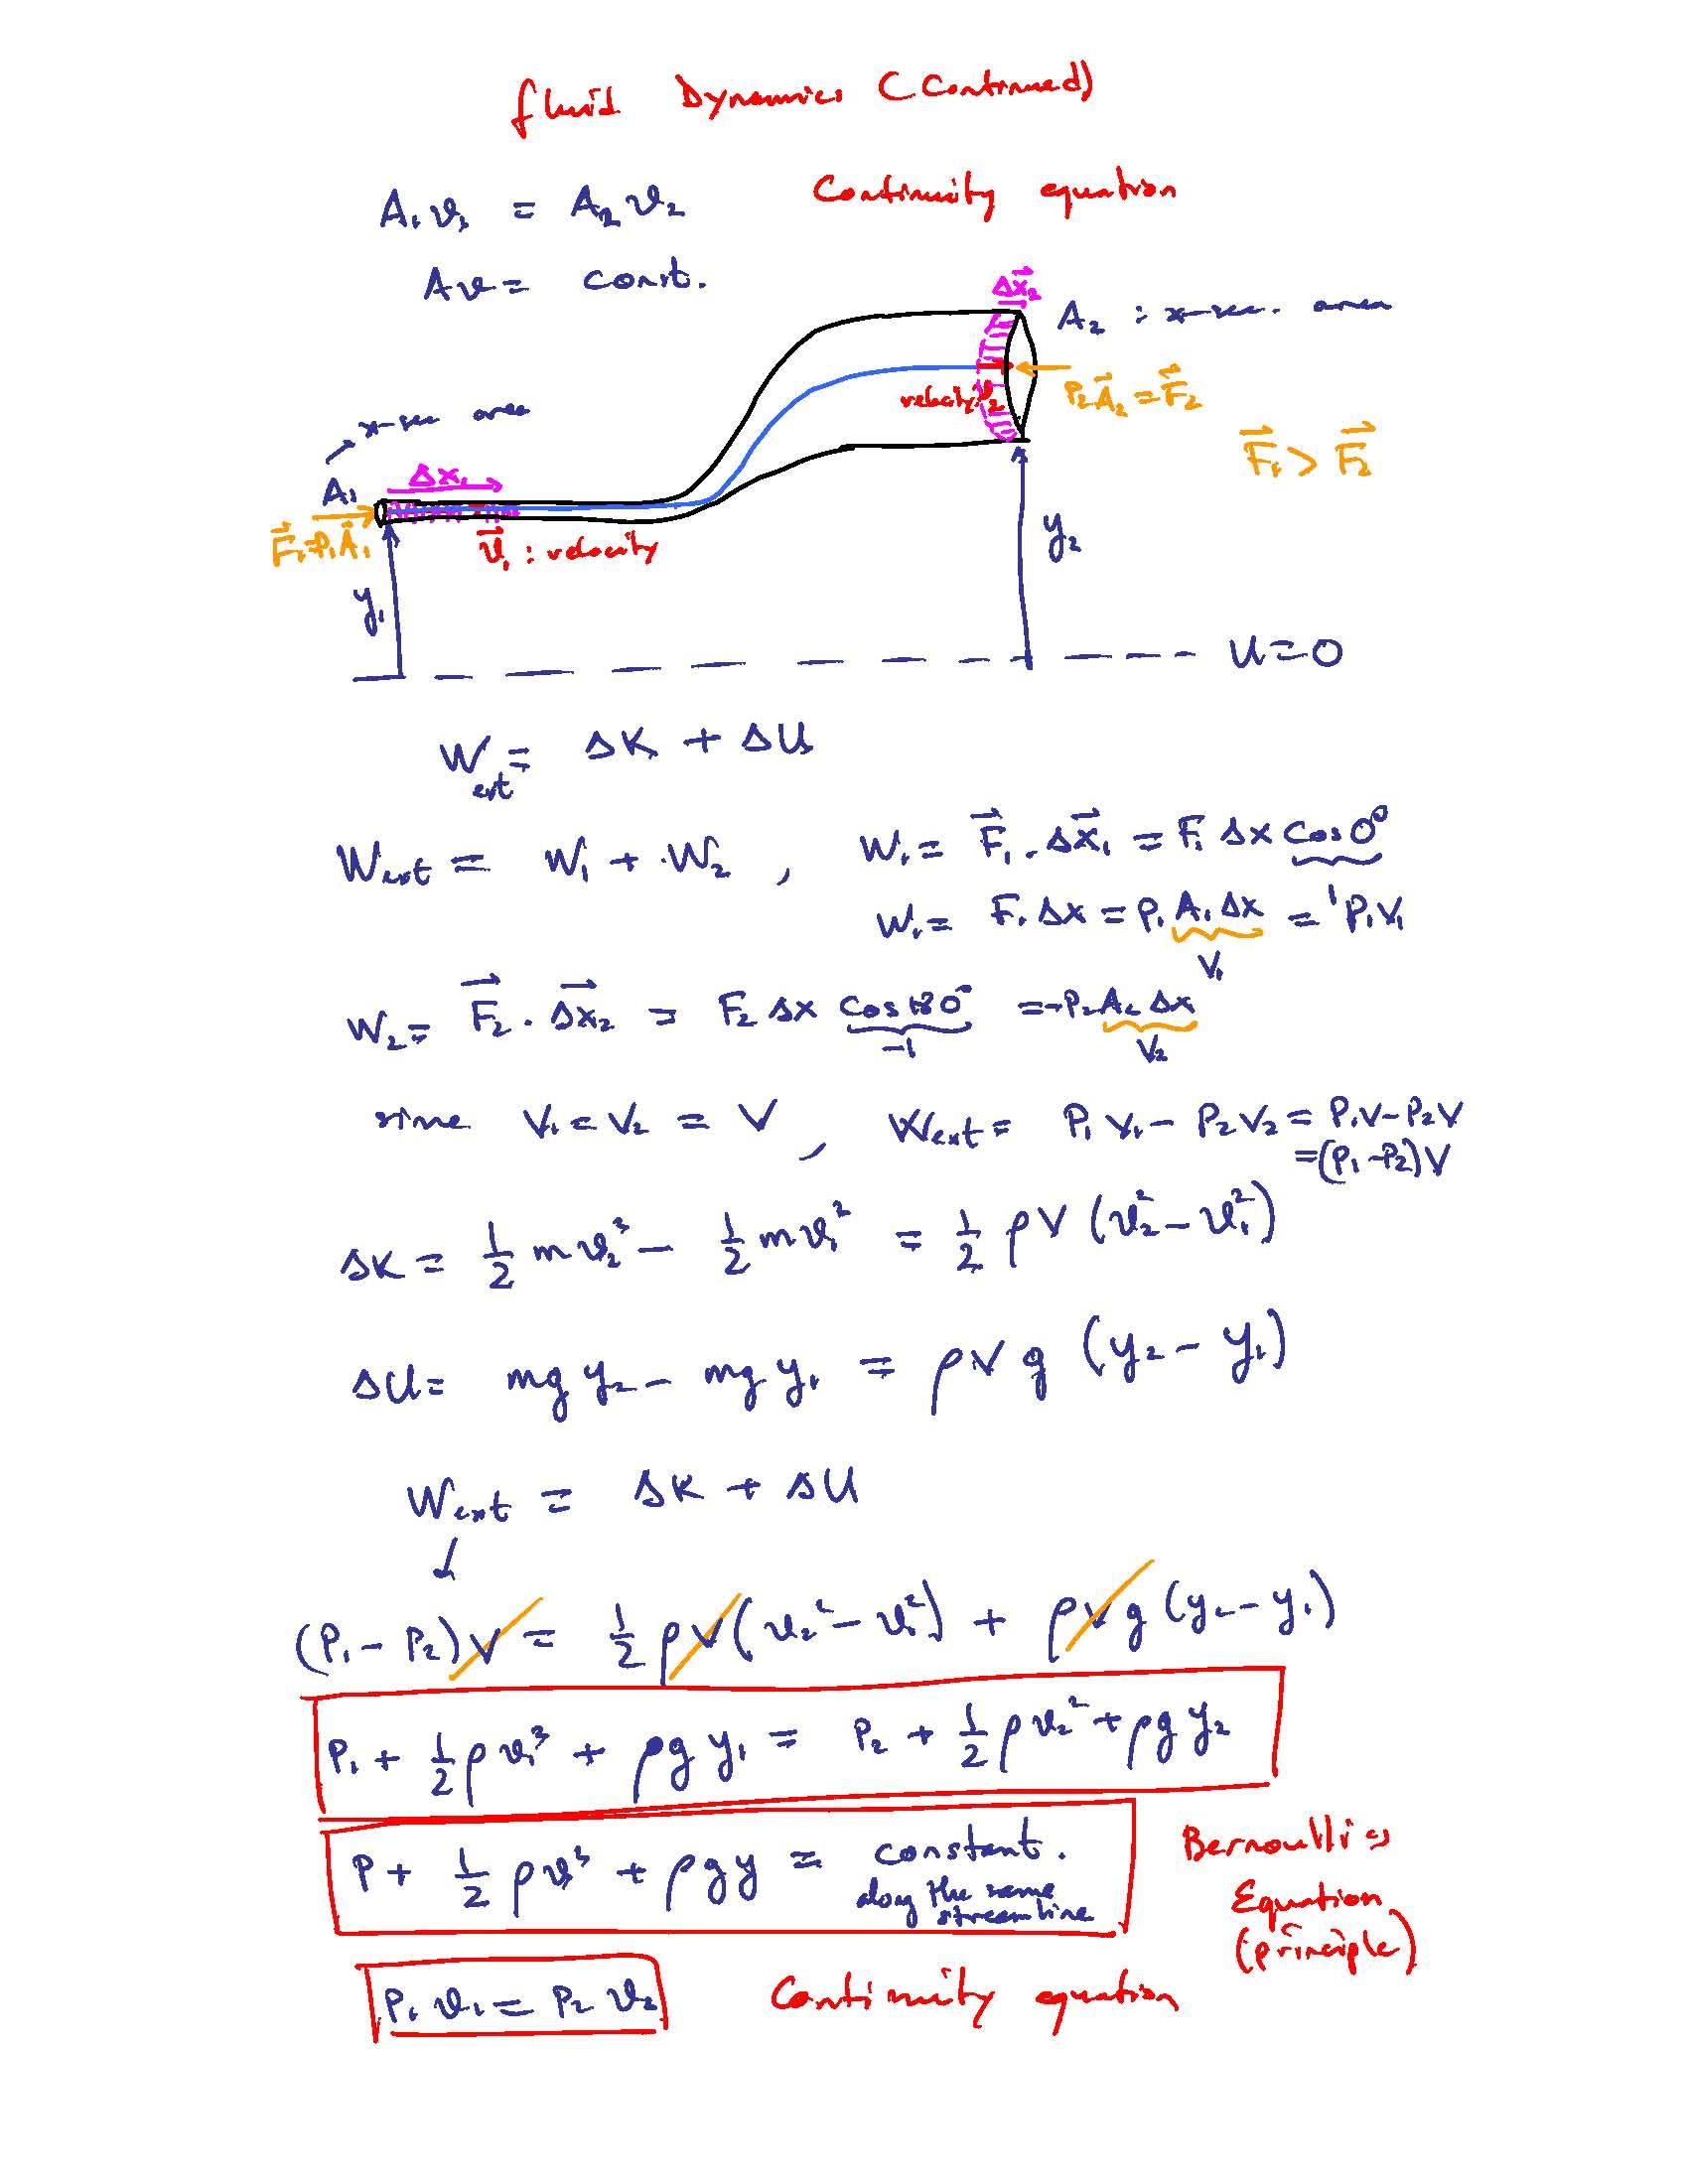 fluid Dynamics (Continued)
A₁v₁ = A₂v₂ Continuity equation
Av = const.
Δx⃗₂
A₂ : x-sec. area
velocity v⃗₂
P₂A⃗₂ = F⃗₂
x-sec area
F⃗₁ > F⃗₂
Δx₁
A₁
F⃗₁=P₁A⃗₁
v⃗₁ : velocity
y₂
y₁
U=0
W_ext = ΔK + ΔU
W_ext = W₁ + W₂ , W₁ = F⃗₁ . Δx⃗₁ = F₁ Δx Cos0°
1
W₁ = F₁ Δx = P₁ A₁ Δx = P₁V₁
V₁
W₂ = F⃗₂ . Δx⃗₂ = F₂ Δx Cos180° = -P₂ A₂ Δx
-1 V₂
sine V₁ = V₂ = V , W_ext = P₁V₁ - P₂V₂ = P₁V - P₂V
=(P₁-P₂)V
ΔK = 1/2 mv₂² - 1/2 mv₁² = 1/2 ρV (v₂² - v₁²)
ΔU = mg y₂ - mg y₁ = ρVg (y₂ - y₁)
W_ext = ΔK + ΔU
(P₁ - P₂)V = 1/2 ρV(v₂² - v₁²) + ρVg (y₂ - y₁)
P₁ + 1/2 ρv₁² + ρg y₁ = P₂ + 1/2 ρv₂² + ρg y₂
P + 1/2 ρv² + ρgy = constant.
along the same
streamline
Bernoulli's
Equation
(principle)
P₁ v₁ = P₂ v₂ Continuity equation